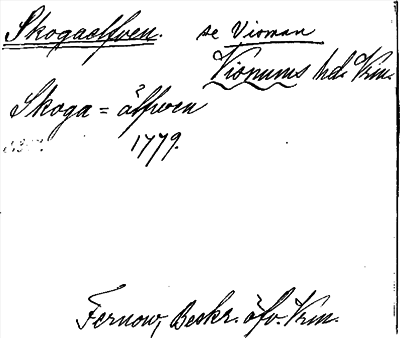 Skogaelfven. se Visman
Visnums hd. Vrm.
Skoga = älfwen
1779.
Fernow, Beskr. öfv. Vrm.